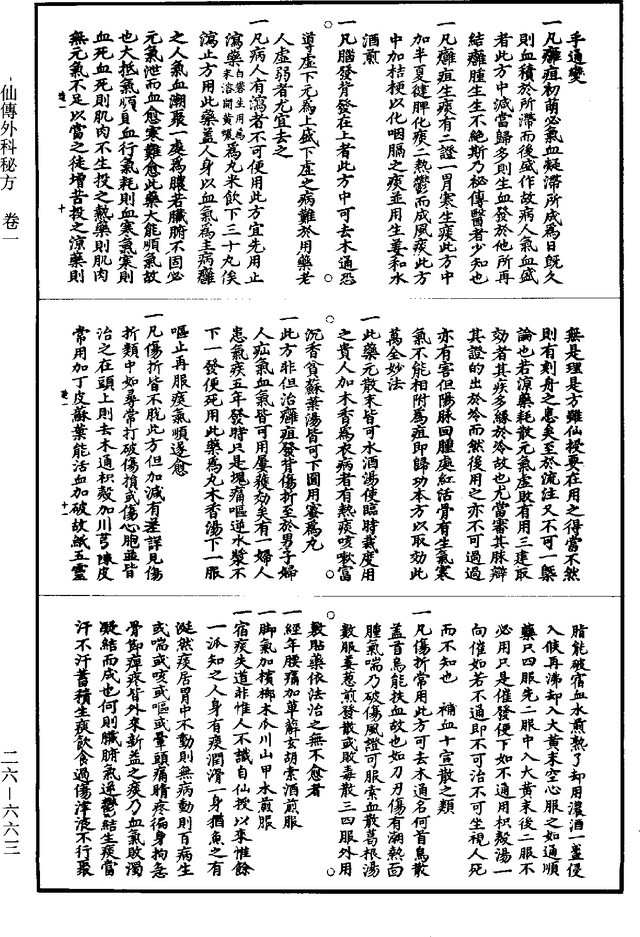 仙傳外科秘方　卷一
二六－六六三
手通變
一凡癰疽初萌必氣血凝滯所成為日既久
則血積於所滯而後盛作故病人氣血盛
者此方中減當歸多則生血發於他所再
結癰腫生生不絕斯乃祕傳醫者少知也
一凡癰疽生痰有二證一胃寒生痰此方中
加半夏健脾化痰二熱鬱而成風痰此方
中加桔梗以化咽膈之痰並用生姜和水
酒煎
一凡腦發背發在上者此方中可去木通恐
導虛下元為上盛下虛之病難於用藥老
人虛弱者尤宜去之
一凡病人有瀉者不可便用此方宜先用止
瀉藥白礬生用為末溶開黃蠟為丸米飲下三十丸俟
瀉止方用此藥蓋人身以血氣為主病癰
之人氣血潮聚一處為膿若臟腑不因必
元氣泄而血愈寒難愈此藥大能順氣故
也大抵氣順負血行氣耗則血寒氣寒則
血死血死則肌肉不生投之熱藥則肌肉
無元氣不足以當之徒增苦投之涼藥則
無是理是方雖仙授要在用之得當不然
則有刻舟之患矣至於流注又不可一槩
論也若涼藥耗散元氣虛敗有用三建取
効者其疾多緣於冷故也尤當審其脉辯
其證的出於冷而然後用之亦不可過過
亦有害但陽脉回腫處紅活骨有生氣寒
氣不能相附為疽即歸功本方以取効此
萬全妙法
一此藥元散末皆可水酒湯使臨時裁度用
之貴人加木香為衣病者有熱痰咳嗽富
沉香貧蘇葉湯皆可下圖用蜜為丸
一此方非但治癰疽發背傷折至於男子婦
人疝氣血氣皆可用屢獲効矣有一婦人
患氣疾五年發時只是塊痛嘔逆水漿不
下一發便死用此藥為丸木香湯下一服
嘔止再服痰氣順遂愈
一凡傷折皆不脫此方但加減有差詳見傷
折類中如尋常打破傷損或傷心胞並皆
治之在頭上則去木通枳殼加川芎陳皮
常用加丁皮蘇葉能活血加破故紙五靈
脂能破宿血水煎熟了却用濃酒一盞侵
入候再沸却入大黃末空心服之如通順
藥只四服先二服中入大黃末後二服不
必用只是催發便下如不通用枳殼湯一
向催如若不通即不可治不可坐視人死
而不知也　補血十宣散之類
一凡傷折常用此方可去木通名何首烏散
蓋首烏能扶血故也如刀刃傷有潮熱面
腫氣喘乃破傷風證可服索血散葛根湯
數服薑葱煎發散或敗毒散三四服外用
敷貼藥依法治之無不愈者
一經年腰痛加萆薢玄胡索酒煎服
一脚氣加檳榔木瓜川山甲水煎服
一宿痰失道非惟人不識自仙授以來惟餘
一派知之人身有痰潤滑一身猶魚之有
涎然痰居胃中不動則無病動則百病生
或喘或咳或嘔或暈頭痛睛疼徧身拘急
骨節痹疼皆外來新益之痰乃血氣敗濁
凝結而成也何則臟腑氣逆鬱結生痰當
汗不汗蓄積生痰飲食過傷津液不行聚